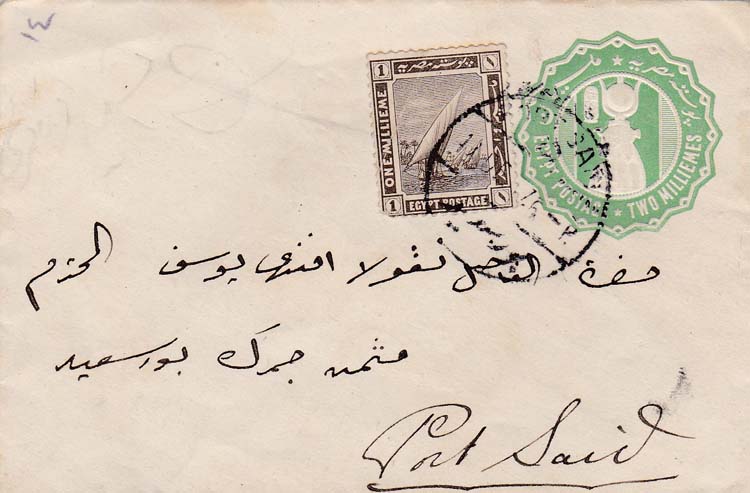 ١٣
بوستة مصرية
1
١
ONE MILLIEME
EGYPT POSTAGE
1
١
بوستة مصرية
EGYPT POSTAGE
TWO MILLIEMES
حضرة الفاضل نقولا افندى يوسف المحترم
مثمن جمرك بورسعيد
Port Said